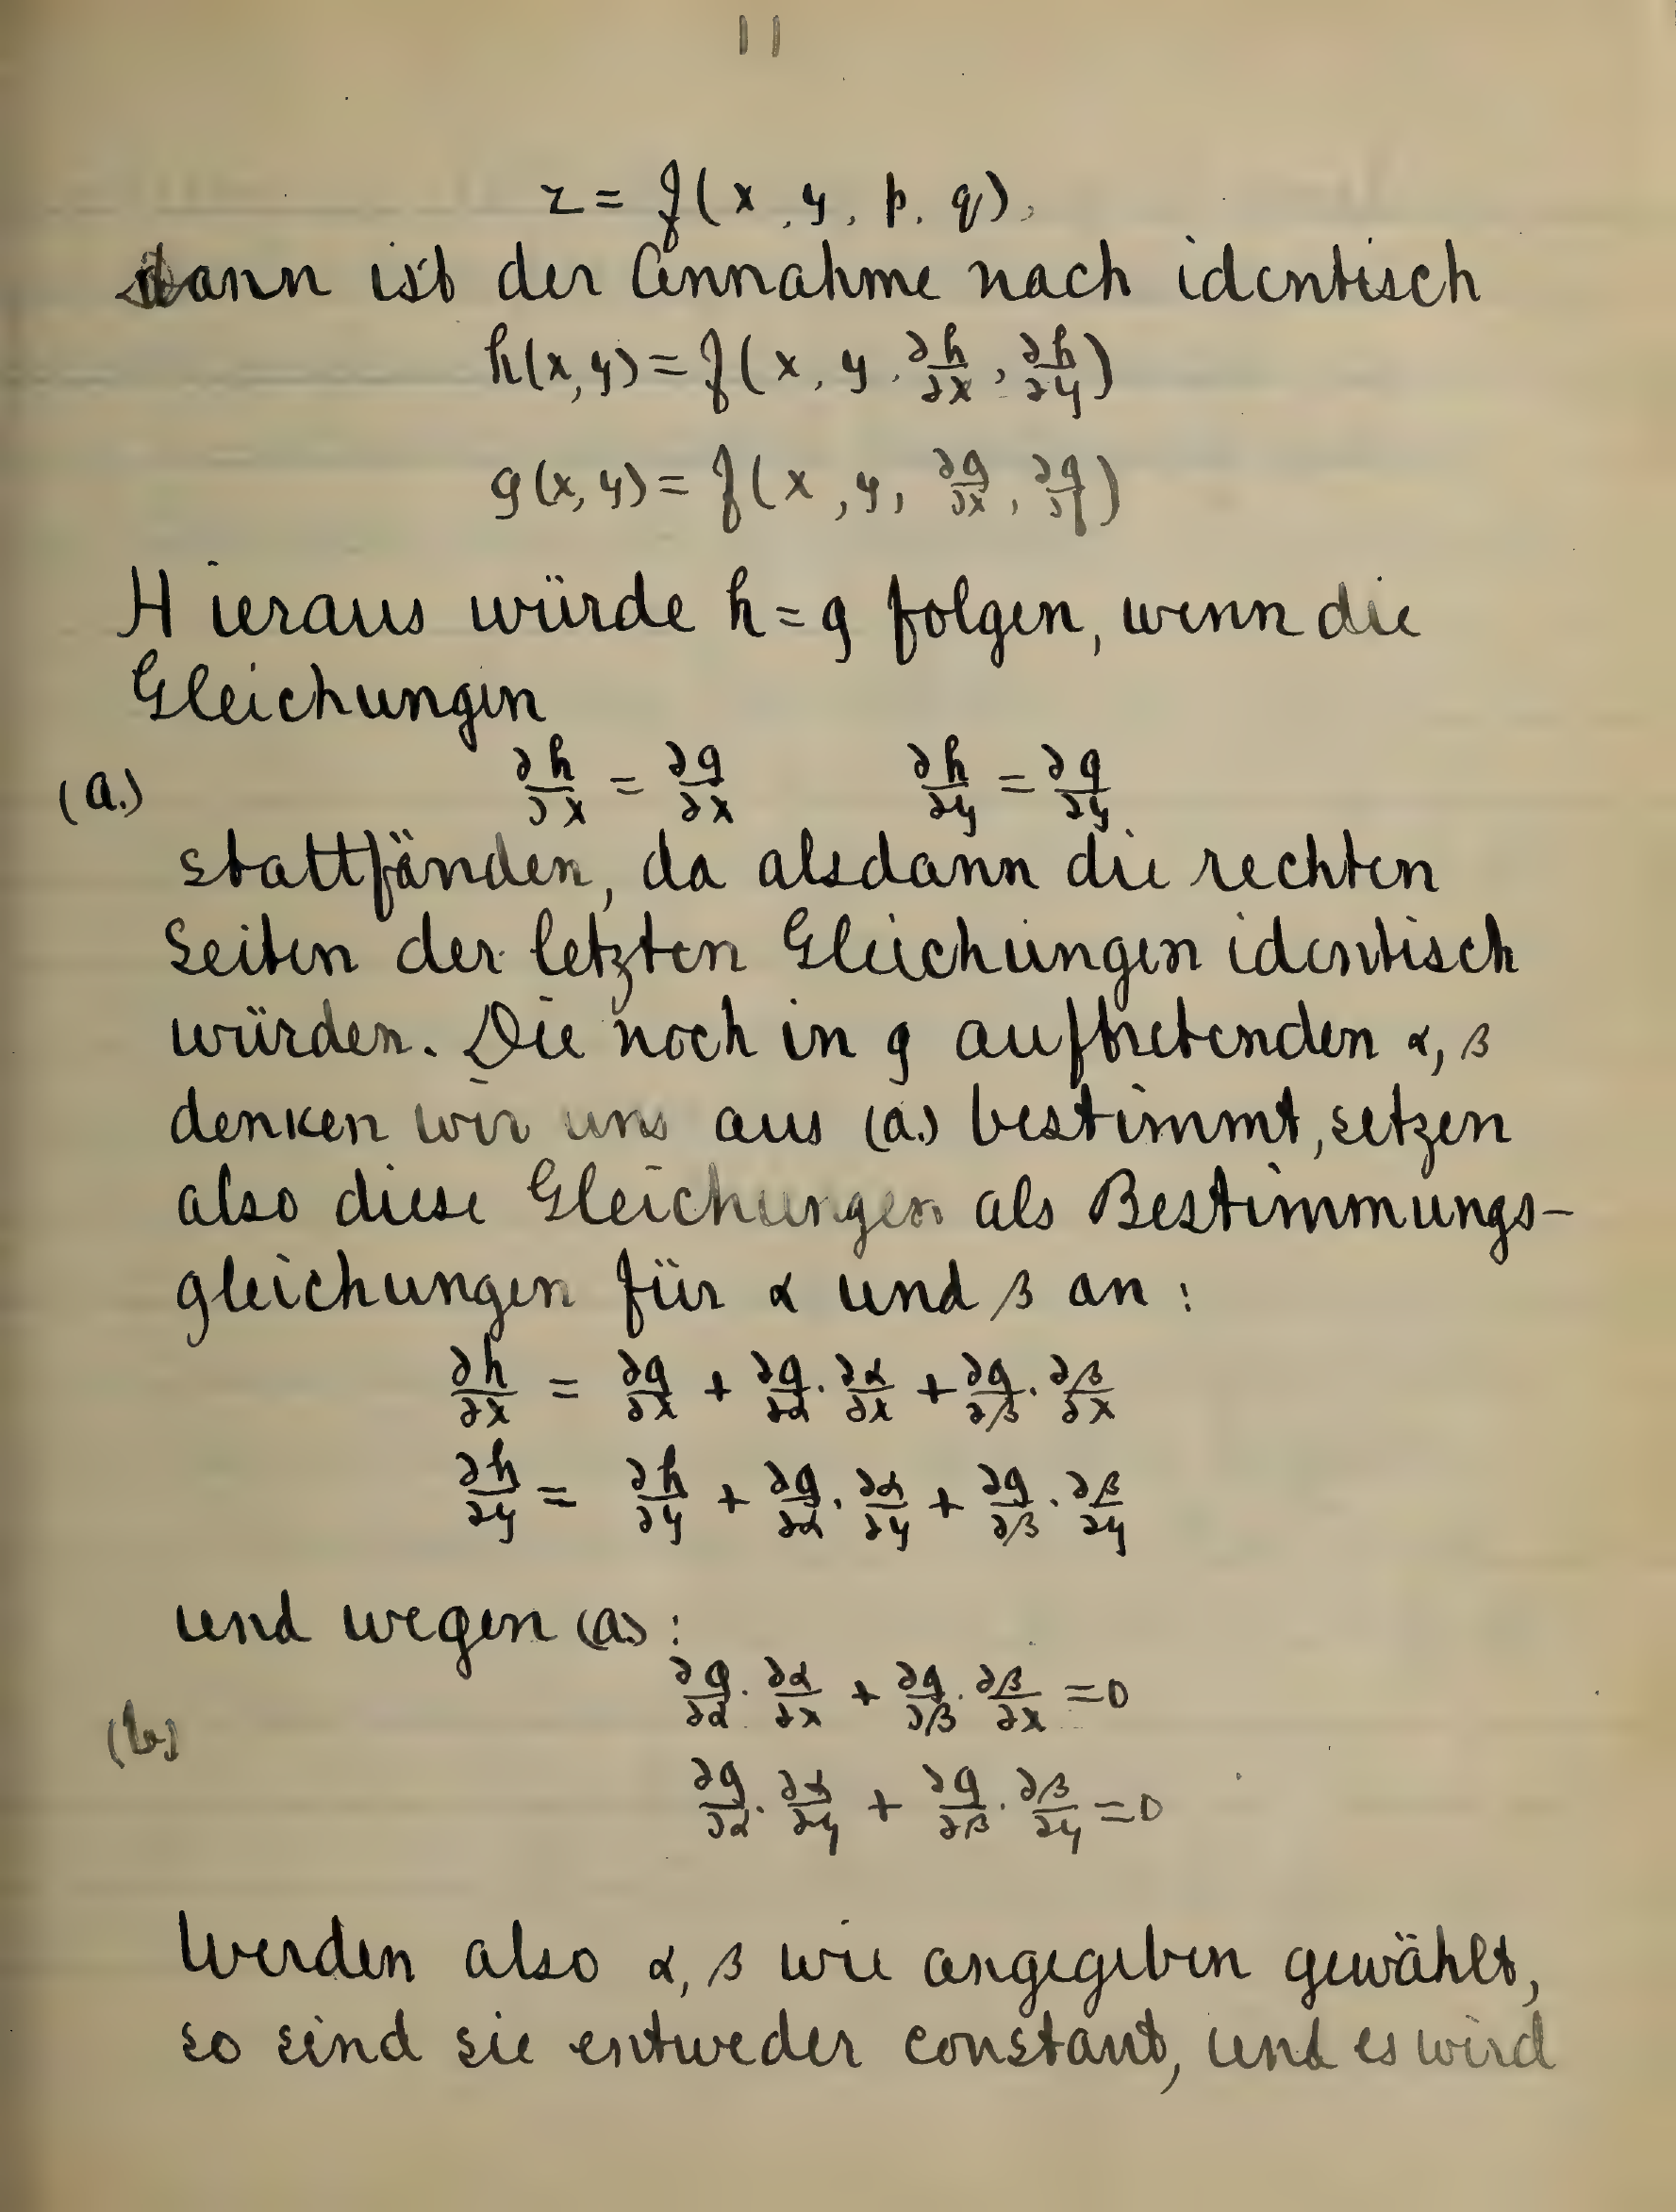 11
z = f(x, y, p, q),
dann ist der Annahme nach identisch
h(x, y) = f(x, y, ∂h/∂x, ∂h/∂y)
g(x, y) = f(x, y, ∂g/∂x, ∂g/∂y)
Hieraus würde h = g folgen, wenn die
Gleichungen
(a.) ∂h/∂x = ∂g/∂x ∂h/∂y = ∂g/∂y
stattfänden, da alsdann die rechten
Seiten der letzten Gleichungen identisch
würden. Die noch in g auftretenden α, β
denken wir uns aus (a.) bestimmt, setzen
also diese Gleichungen als Bestimmungs-
gleichungen für α und β an:
∂h/∂x = ∂g/∂x + ∂g/∂α · ∂α/∂x + ∂g/∂β · ∂β/∂x
∂h/∂y = ∂h/∂y + ∂g/∂α · ∂α/∂y + ∂g/∂β · ∂β/∂y
und wegen (a.):
∂g/∂α · ∂α/∂x + ∂g/∂β · ∂β/∂x = 0
(b.)
∂g/∂α · ∂α/∂y + ∂g/∂β · ∂β/∂y = 0
Werden also α, β wie angegeben gewählt,
so sind sie entweder constant, und es wird